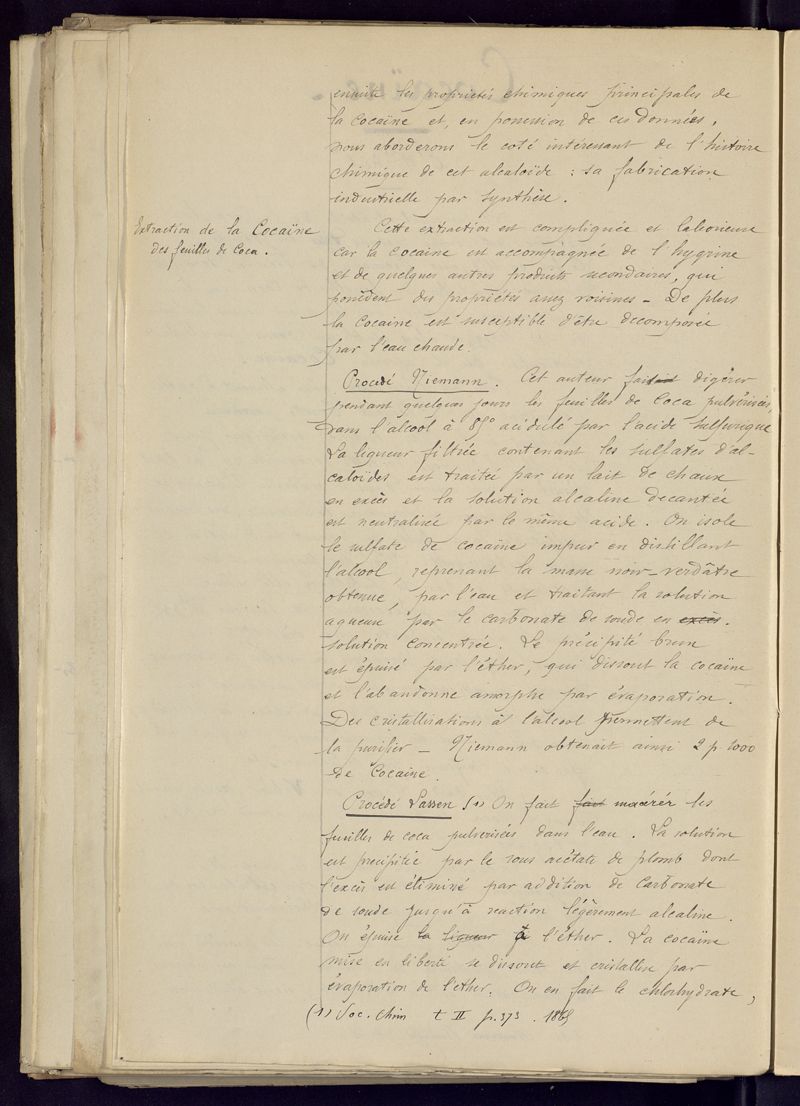 ensuite les propriétés chimiques principales de
la cocaïne et, en possession de ces données,
nous aborderons le coté intéressant de l'histoire
chimique de cet alcaloïde : sa fabrication
industrielle par synthèse.
Extraction de la Cocaïne
des feuilles de Coca.
Cette extraction est compliquée et laborieuse
car la cocaïne est accompagnée de l'hygrine
et de quelques autres produits secondaires, qui
possèdent des propriétés assez voisines – De plus
la cocaïne est susceptible d'être décomposée
par l'eau chaude.
Procédé Niemann. Cet auteur faisait digérer
pendant quelques jours les feuilles de Coca pulvérisées,
dans l'alcool à 85° acidulé par l'acide sulfurique
La liqueur filtrée contenant les sulfates d'al-
caloïdes est traitée par un lait de chaux
en excès et la solution alcaline décantée
est neutralisée par le même acide. On isole
le sulfate de cocaïne impur en distillant
l'alcool, reprenant la masse noir-verdâtre
obtenue, par l'eau et traitant la solution
aqueuse par le carbonate de soude en excès.
solution concentrée. Le précipité brun
est épuisé par l'éther, qui dissout la cocaïne
et l'abandonne amorphe par évaporation.
Des cristallisations à l'alcool permettent de
la purifier – Niemann obtenait ainsi 2 p. 1000
de Cocaïne.
Procédé Lossen (1) On fait fait macérer les
feuilles de coca pulvérisées dans l'eau. La solution
est précipitée par le sous acétate de plomb dont
l'excès est éliminé par addition de carbonate
de soude jusqu'à réaction légèrement alcaline.
On épuise la liqueur à l'éther. La cocaïne
mise en liberté se dissout et cristallise par
évaporation de l'éther. On en fait le chlorhydrate,
(1) Soc. Chim t II p. 373. 1865